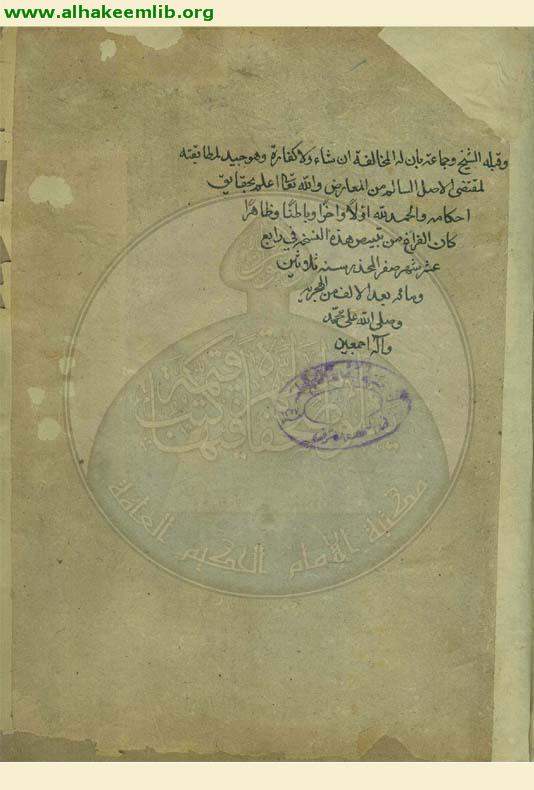 www.alhakeemlib.org
وقبله الشيخ وجماعة بان له المخالفة ان شاء ولا كفارة وهو جيد لمطابقته
لمقتضى الاصل السالم من المعارض والله تعا اعلم بحقايق
احكامه والحمد لله اولاً واخراً وباطنًا وظاهرًا
كان الفراغ من تبييض هذه النسخه في رابع
عشر شهر صفر سنه ثلاثين
ومائه بعد الالف من الهجريه
وصلى الله على محمد
وآله اجمعين
مكتبة الإمام الحكيم العامة